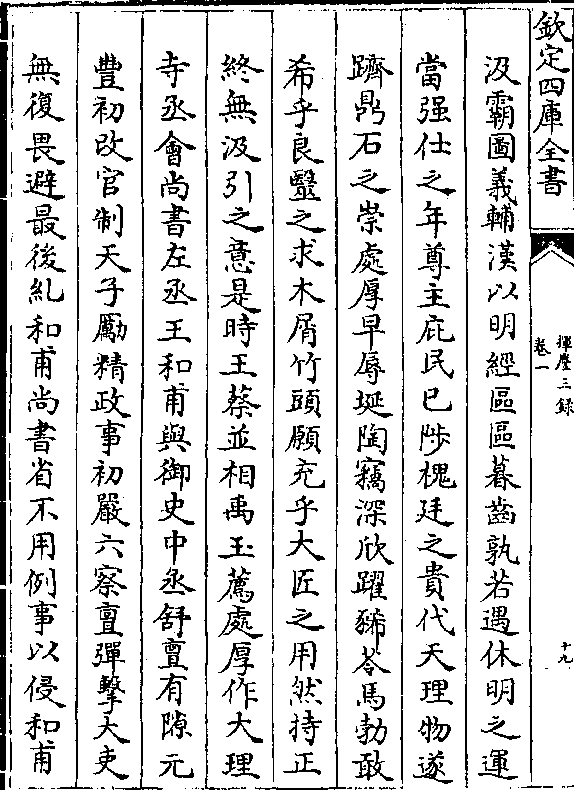 欽定四庫全書
揮麈三錄
卷一
十九
汲霸圖義輔漢以明經區區暮齒孰若遇休明之運
當强仕之年尊主庇民已陟槐廷之貴代天理物遂
躋鼎石之崇處厚早辱埏陶竊深欣躍豨苓馬勃敢
希乎良毉之求木屑竹頭願充乎大匠之用然持正
終無汲引之意是時王蔡並相禹玉薦處厚作大理
寺丞會尚書左丞王和甫與御史中丞舒亶有隙元
豐初改官制天子勵精政事初嚴六察亶彈擊大吏
無復畏避最後糺和甫尚書省不用例事以侵和甫